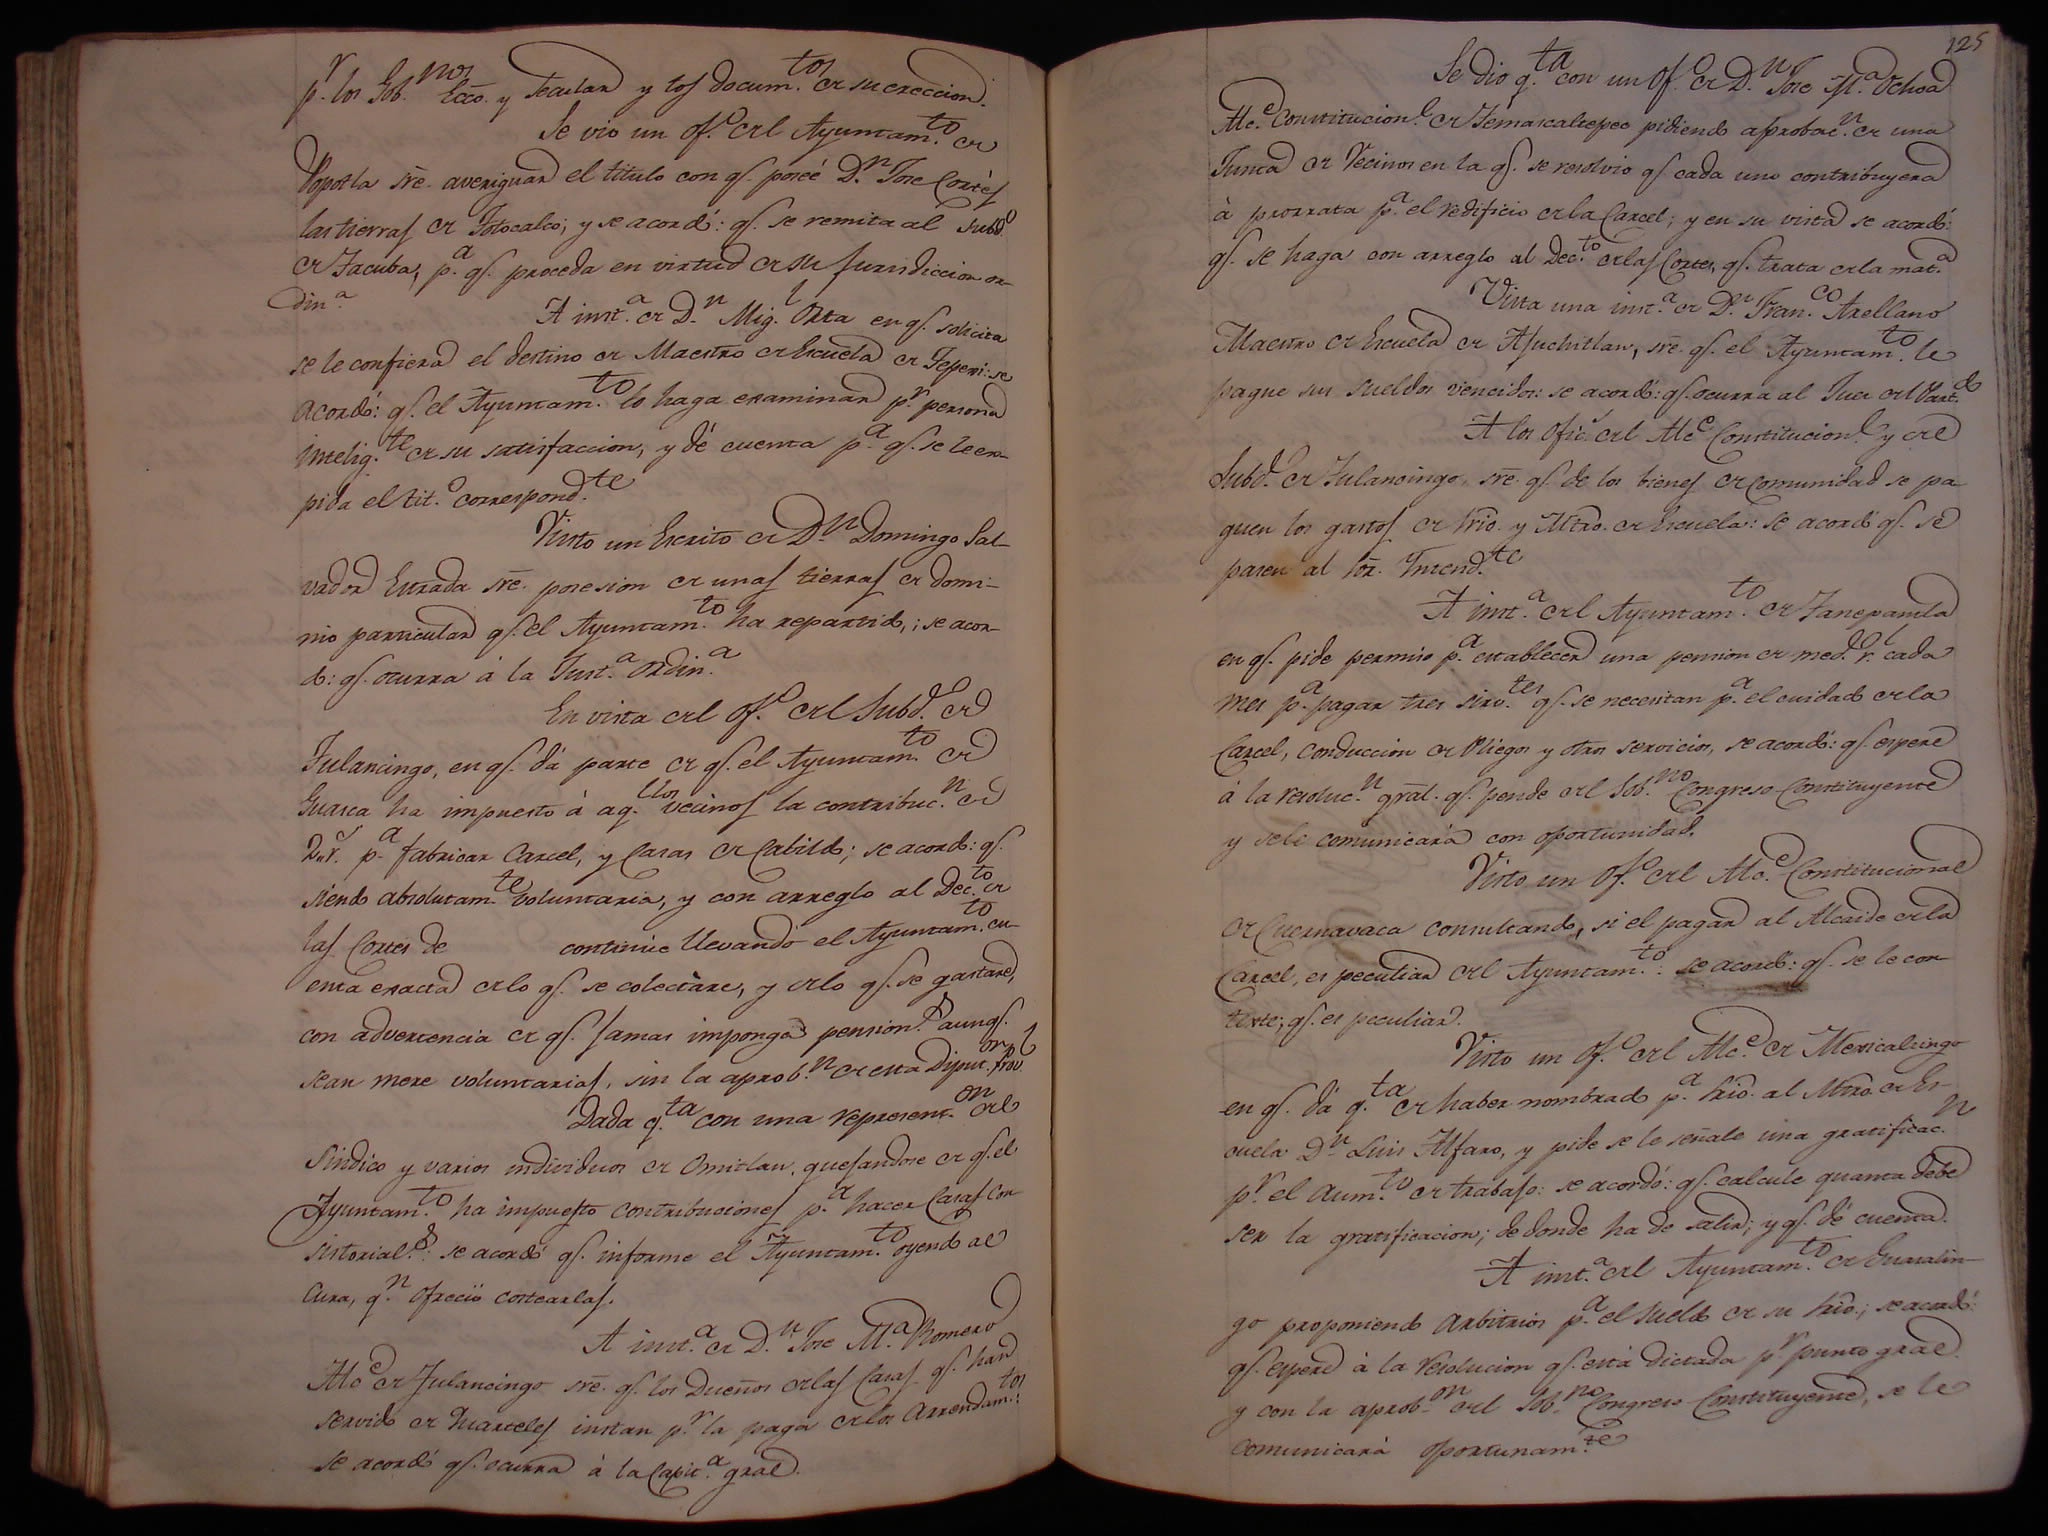 p.r los Gob.nos Ecco. y Secular y los docum.tos de su ereccion.
Se vio un of.o del Ayuntam.to de
Popotla sre. averiguar el titulo con q.e poseé D.n Jose Cortés
las tierras de Totocalco; y se acordó: q.e se remita al Subd.o
de Tacuba, p.a q.e proceda en virtud de su Jurisdiccion or-
din.a
A inst.a de D.n Mig.l Orta en q.e solicita
se le confiera el destino de Maestro de Escuela de Tepexi: se
acordó: q.e el Ayuntam.to lo haga examinar p.r persona
intelig.te de su satisfaccion, y dé cuenta p.a q.e se le ex-
pida el tit.o correspond.te
Visto un Escrito de D.n Domingo Sal-
vador Estrada sre. posesion de unas tierras de domi-
nio particular q.e el Ayuntam.to ha repartido,; se acor-
do: q.e ocurra á la Just.a Ordin.a
En vista del of.o del Subd.o de
Tulancingo, en q.e dá parte de q.e el Ayuntam.to de
Guasca ha impuesto á aq.llos vecinos la contribuc.n de
2 r.s p.a fabricar Carcel, y Casas de Cabildo; se acordo: q.e
siendo absolutam.te voluntaria, y con arreglo al Dec.to de
las Cortes de continúe llevando el Ayuntam.to cu-
enta exacta de lo q.e se colectàre, y de lo q.e se gastare,
con advertencia de q.e jamas imponga pension.s aunq.e
sean mere voluntarias, sin la aprob.n de esta Diput.on Prov.l
Dada q.ta con una represent.on del
Sindico y varios individuos de Omitlan, quejandose de q.e el
Ayuntam.to ha impuesto contribuciones p.a hacer Casas Con
sistorial.s: se acordó q.e informe el Ayuntam.to oyendo al
Cura, q.n ofreció costearlas.
A inst.a de D.n Jose M.a Romero
Alc.e de Tulancingo sre. q.e los Dueños de las Casas q.e han
servido de Quarteles instan p.r la paga de los Arrendam.tos:
se acordó q.e ocurra á la Capit.a gral.
125
Se dio q.ta con un Of.o de D.n Jose M.a Ochoa
Alc.e Constitucion.l de Temascaltepec pidiendo aprobac.n de una
Junta de Vecinos en la q.e se resolvio q.e cada uno contribuyera
à prorrata p.a el redificio de la Carcel; y en su vista se acordó:
q.e se haga con arreglo al Dec.to de las Cortes, q.e trata de la mat.a
Vista una inst.a de D.n Fran.co Arellano
Maestro de Escuela de Ajuchitlan, sre. q.e el Ayuntam.to le
pague sus sueldos vencidos: se acordó: q.e ocurra al Juez del Part.do
A los Ofic.s del Alc.e Constitucion.l y del
Subd.o de Tulancingo, sre. q.e de los bienes de comunidad se pa
guen los gastos de Srio. y Mtro. de Escuela: se acordó q.e se
pasen al Sor. Intend.te
A inst.a del Ayuntam.to de Tanepantla
en q.e pide permiso p.a establecer una pension de med.o r.l cada
mes p.a pagar tres sirv.tes q.e se necesitan p.a el cuidado de la
Carcel, conduccion de Pliegos y otros servicios, se acordó: q.e espere
á la resoluc.n gral. q.e pende del Sob.no Congreso Constituyente
y sele comunicará con oportunidad.
Visto un Of.o del Alc.e Constitucional
de Cuernavaca consultando, si el pagar al Alcaide de la
Carcel, es peculiar del Ayuntam.to: se acordo: q.e se le con
teste; q.e es peculiar.
Visto un Of.o del Alc.e de Mexicalcingo
en q.e dá q.ta de haber nombrado p.a Srio. al Mtro. de Es-
cuela D.n Luis Alfaro, y pide se le señale una gratificac.n
p.r el aum.to de trabajo: se acordó: q.e calcule quanta debe
ser la gratificacion; de donde ha de salir; y q.e dé cuenta.
A inst.a del Ayuntam.to de Guasalin-
go proponiendo Arbitrios p.a el sueldo de su Srio.; se acordó:
q.e espere à la resolucion q.e está dictada p.r punto gral.
y con la aprob.on del Sob.no Congreso Constituyente, se le
comunicará oportunam.te